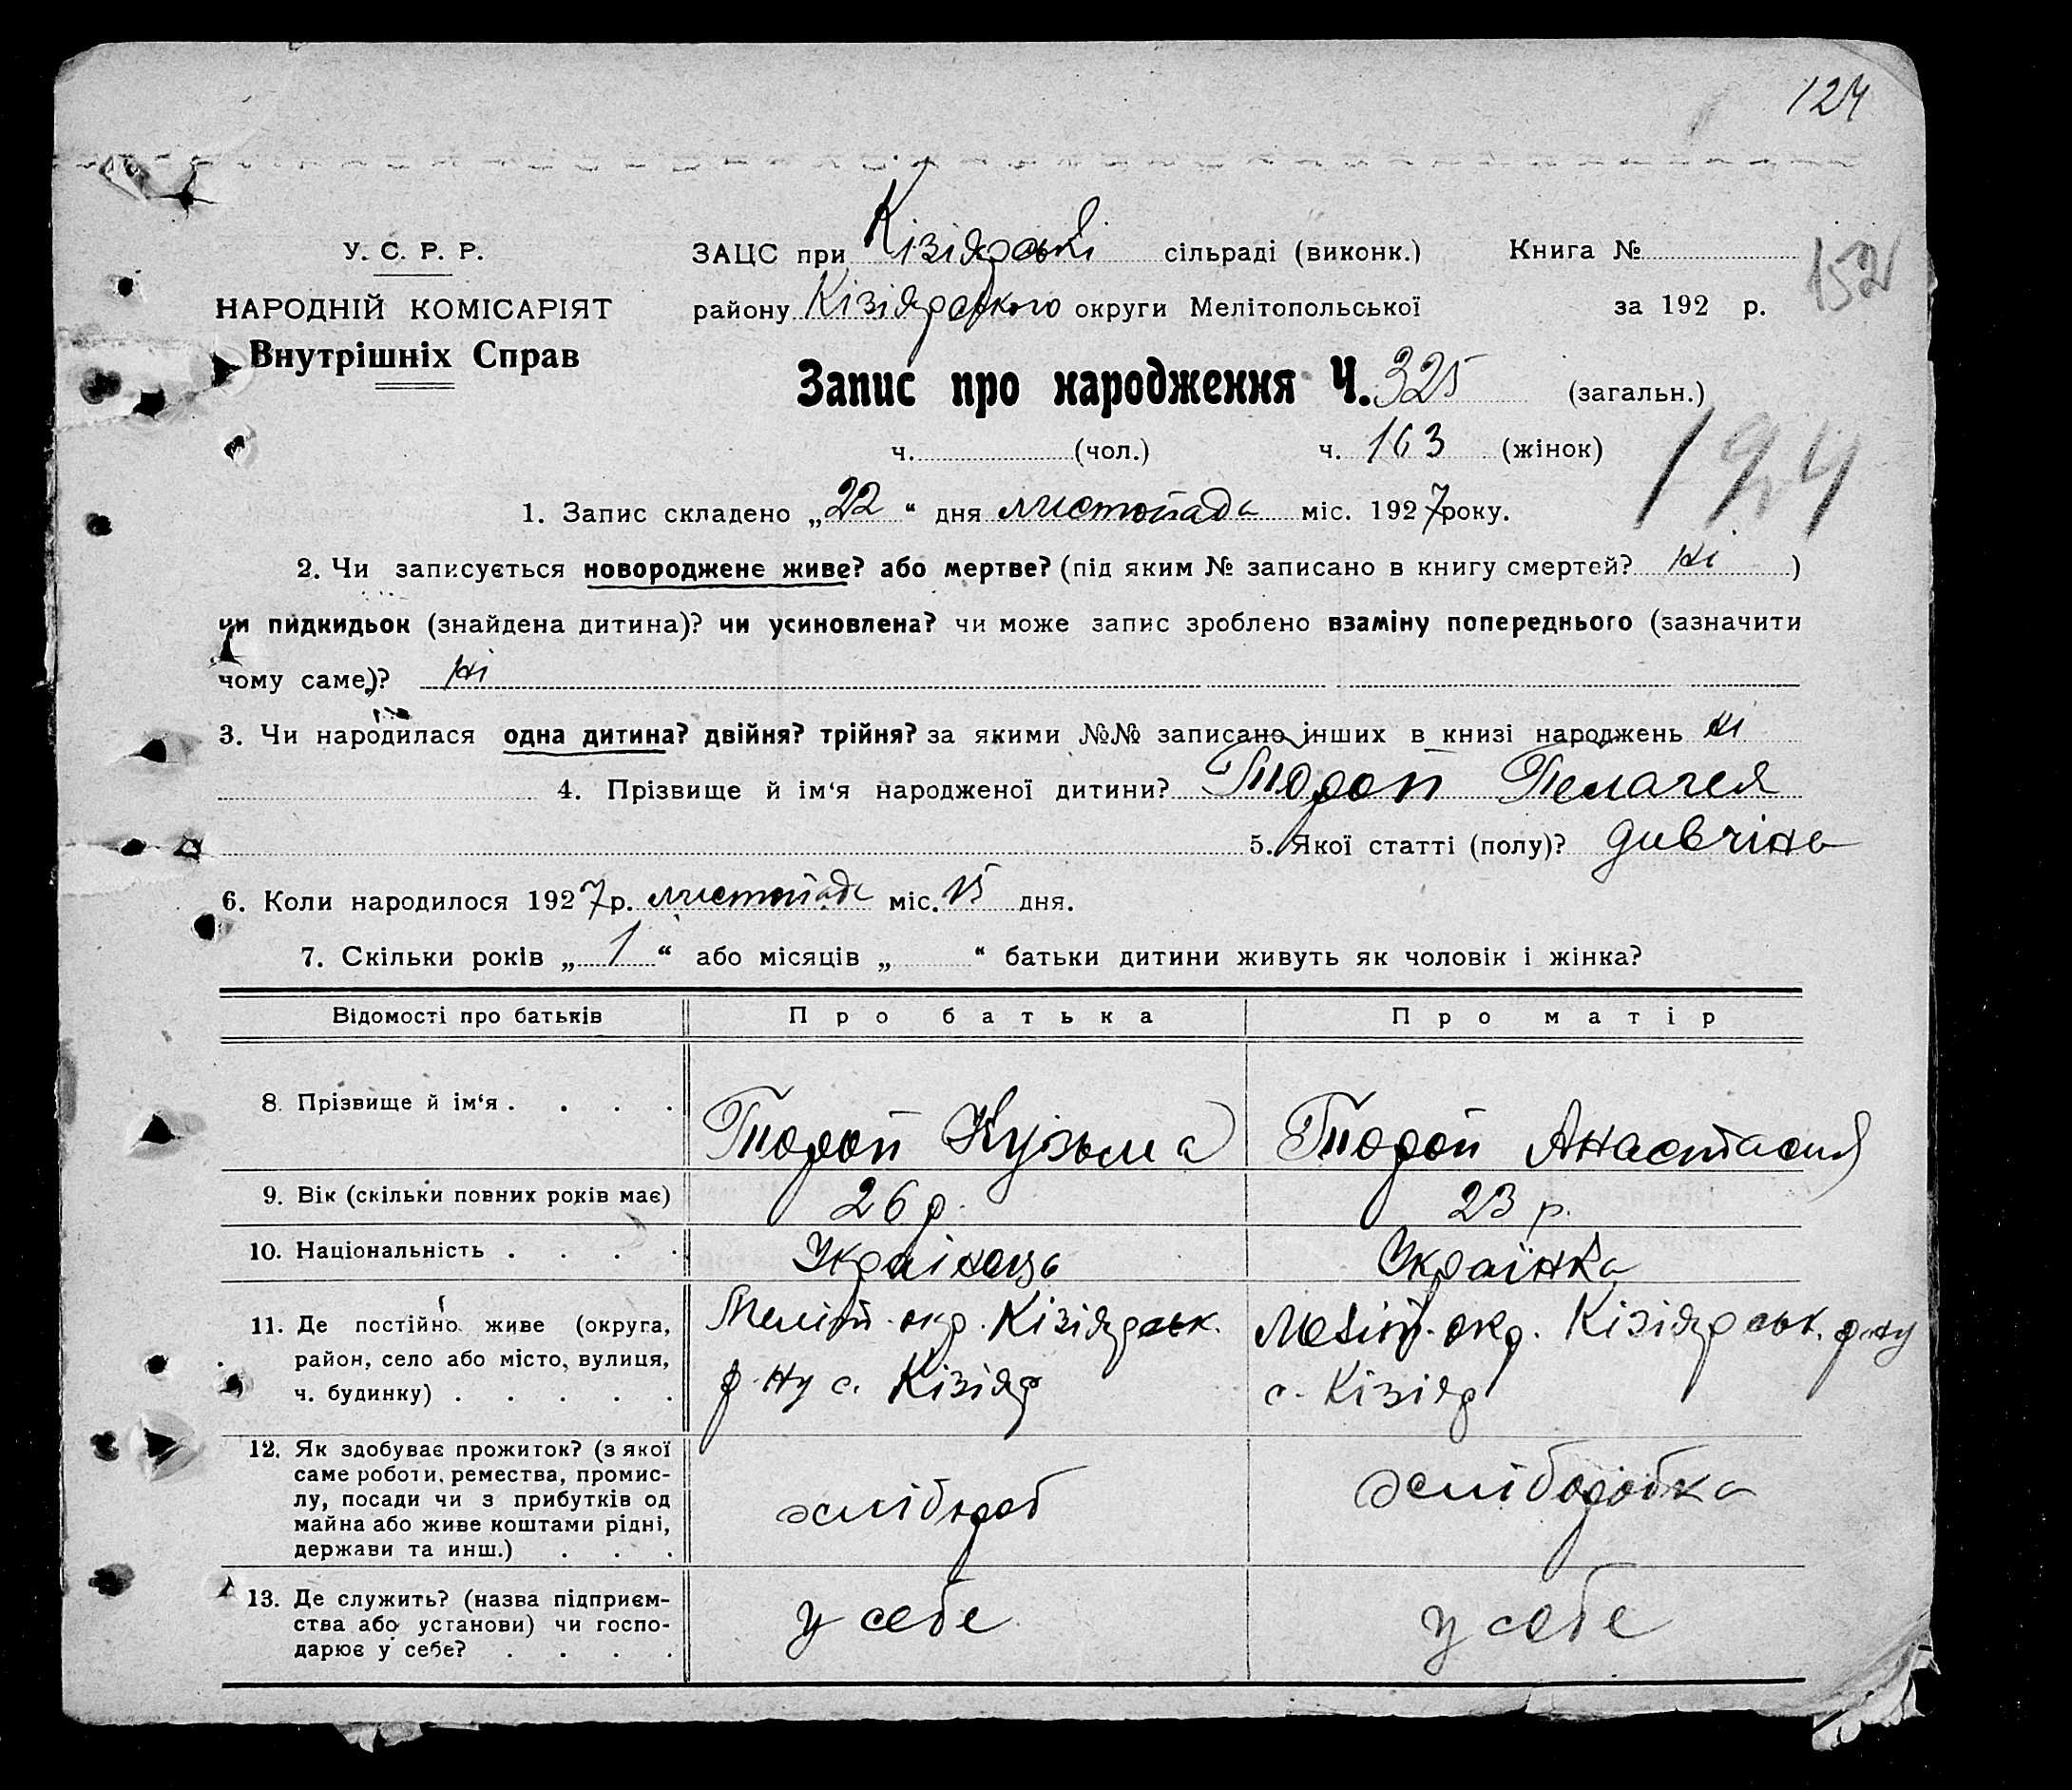 124
У. С. Р. Р.
ЗАЦС при Кізіярські сільраді (виконк.) Книга №
152
НАРОДНІЙ КОМІСАРІЯТ
району Кізіярського округи Мелітопольської за 192 р.
Внутрішніх Справ
Запис про народження Ч. 325 (загальн.)
ч. (чол.) ч. 163 (жінок)
124
1. Запис складено „22“ дня листопада міс. 1927 року.
2. Чи записується новороджене живе? або мертве? (під яким № записано в книгу смертей? ні )
чи підкидьок (знайдена дитина)? чи усиновлена? чи може запис зроблено взаміну попереднього (зазначити
чому саме)? ні
3. Чи народилася одна дитина? двійня? трійня? за якими №№ записано інших в книзі народжень ні
4. Прізвище й ім‘я народженої дитини? Тороп Пелагея
5. Якої статті (полу)? дивчіна
6. Коли народилося 1927 р. листопада міс. 15 дня.
7. Скільки років „ 1 “ або місяців „ “ батьки дитини живуть як чоловік і жінка?
Відомості про батьків Про батька Про матір
8. Прізвище й ім‘я . . . . Тороп Кузьма Тороп Анастасия
9. Вік (скільки повних років має) 26 р. 23 р.
10. Національність . . . . Українець Українка
11. Де постійно живе (округа,
район, село або місто, вулиця,
ч. будинку) . . . . .
Меліт. окр. Кізіярськ.
р-ну с. Кізіяр
Меліт. окр. Кізіярськ. р-ну
с. Кізіяр
12. Як здобуває прожиток? (з якої
саме роботи, ремества, промис-
лу, посади чи з прибутків од
майна або живе коштами рідні,
держави та инш.) . . .
хлібороб
хліборобка
13. Де служить? (назва підприєм-
ства або установи) чи госпо-
дарює у себе? . . . .
у себе
у себе